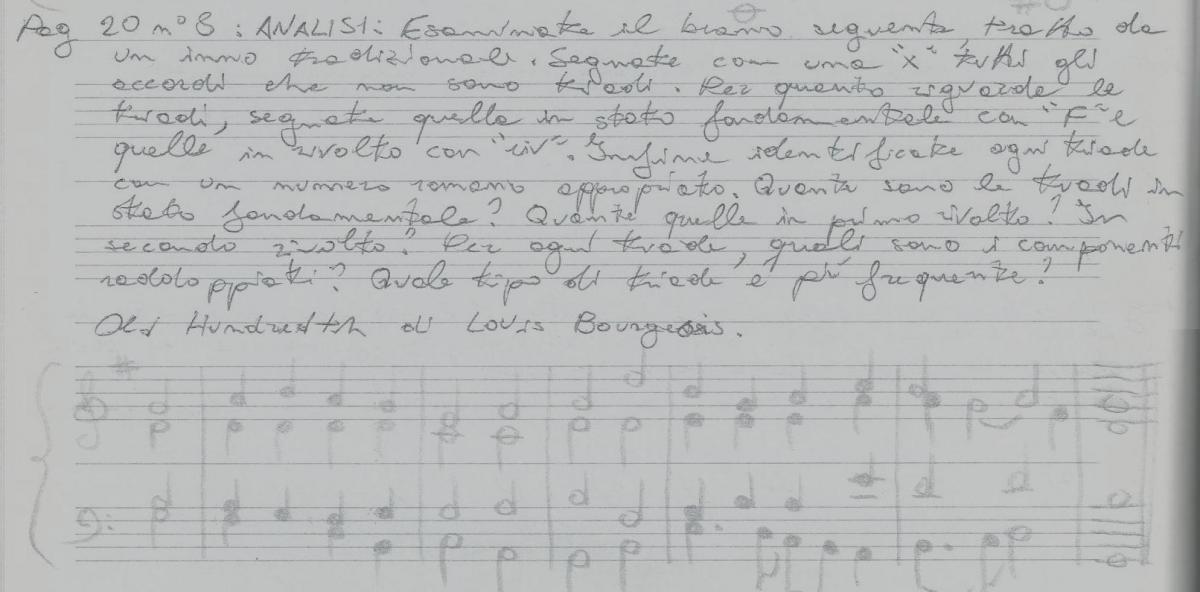 Pag 20 n° 8 : ANALISI: Esaminate il brano seguente, tratto da
un inno tradizionale. Segnate con una "x" tutti gli
accordi che non sono triadi. Per quanto riguarda le
triadi, segnate quelle in stato fondamentale con "F" e
quelle in rivolto con "riv". Infine identificate ogni triade
con un numero romano appropriato. Quante sono le triadi in
stato fondamentale? Quante quelle in primo rivolto? In
secondo rivolto? Per ogni triade, quali sono i componenti
raddoppiati? Quale tipo di triade è più frequente?
Old Hundredth di Louis Bourgeois.